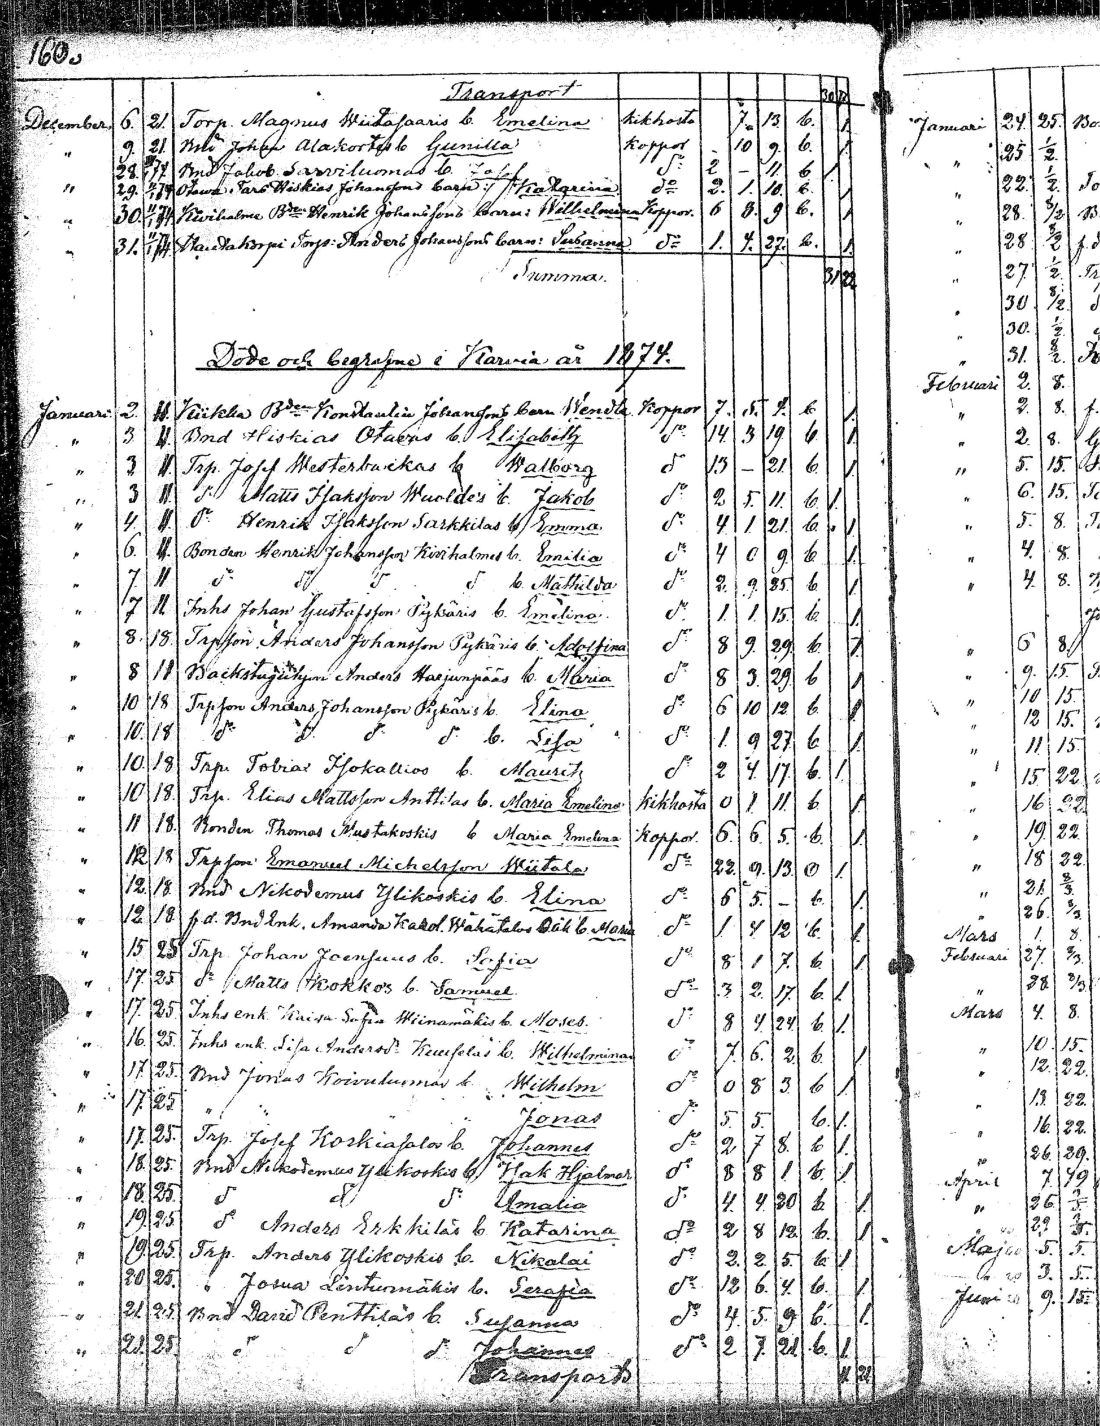 160.
Transport 30 21
December 6. 21. Torp. Magnus Wiitasaaris b. Emelina kikhosta 7. 13. b. 1.
" 9. 21 Bnd Johan Alakortes b. Gunilla koppor - 10 9. b. 1.
" 28. Bnd Jakob Sarviluomas b. Josef do 2 - 11. b 1
" 29. Otawa Lars Hiskias Johansson's barn: Katarina do 2. 1. 10. b. 1
" 30. Kivihalme Bden Henrik Johansson's barn: Wilhelmina Koppor. 6 8. 9 b. 1.
" 31. Torp: Anders Johansson's barn: Susanna do 1. 4. 27. b. 1.
Summa. 31 22
Döde och begrafne i Karvia år 1874.
Januari 2. 11. Bden Konstantin Johansson's barn Wendla Koppor 7. 5. 2. b 1.
" 3 11. Bnd Hiskias Otavas b. Elisabeth do 14. 3 19 b. 1.
" 3. 11. Trp. Josef Westerbackas b Walborg do 13 - 21. b. 1.
" 3 11. do Matts Isaksson Wuoldes b. Jakob do 2 5. 11. b 1.
" 4. 11. do Henrik Isaksson Sarkkilas b Emma do 4 1 21. b. 1.
" 6. 11. Bonden Henrik Johansson Kivihalmes b. Emilia do 4 0 9. b 1.
" 7 11 do do do do b. Mathilda do 2. 9. 25. b 1.
" 7 11. Inhs Johan Gustafsson Pizkäris b. Emelina. do 1. 1. 15. b 1.
" 8. 18. Trpson Anders Johansson Pizkäris b. Adolfina do 8 9. 29. b. 1.
" 8 18 Anders Harjunpääs b. Maria do 8 3. 29 b 1
" 10 18 Trpson Anders Johansson Pizkäris b. Elina do 6 10 12 b 1
" 10. 18 do do do do b. Lisa do 1. 9 27. b 1.
" 10. 18 Trp. Tobias Isokallios b. Mauritz do 2 4. 17. b. 1.
" 10 18. Trp. Elias Mattsson Anttilas b. Maria Emelina kikhosta 0 1 11. b 1
" 11 18. Bonden Thomas Mustakoskis b Maria Emelina koppor. 6 6. 5. b. 1.
" 12 18 Trpson Emanuel Michelsson Wiitala do 22. 9. 13. 0 1.
" 12. 18. Bnd Nikodemus Ylikoskis b. Elina do 6 5. - b. 1.
" 12 18 f.d. Bnd Enk. Amanda Karol. Wähätalos b. Maria do 1 4 12 b. 1.
" 15 25 Trp. Johan Joensuus b. Sofia do 8 1 7. b. 1.
" 17. 25 do Matts Kokkos b. Samuel do 3. 2. 17. b. 1.
" 17. 25. Inhs enk. Kaisa Sofia Wiinamäkis b. Moses. do 8 4. 24. b. 1.
" 16. 25. Inhs enk. Lisa Andersdr b. Wilhelmina do 7. 6. 2. b. 1.
" 17. 25. Bnd Jonas Koivuluomas b. Wilhelm do 0 8 3. b 1.
" 17. 25 " " Jonas do 5. 5. b. 1.
" 17. 25. Trp. Josef Koskiasalos b. Johannes do 2 7 8. b 1.
" 18. 25. Bnd Nikodemus Ylikoskis b Isak Hjalmar do 8 8 1 b. 1
" 18. 25. do do do Amalia do 4. 4. 20 b. 1.
" 19. 25 do Anders Erkkiläs b. Katarina do 2 8 12. b. 1.
" 19. 25. Trp. Anders Ylikoskis b. Nikolai do 2. 2. 5. b 1
" 20 25. " Josua Lintuomäkis b. Serafia do 12 6. 4. b. 1.
" 21. 25. Bnd David Penttiläs b. Susanna do 4. 5. 9 b. 1.
" 21. 25. do do do Johannes do 2 7. 21. b. 1.
Transport 11 22
Januari 24. 25.
" 25 1/2.
" 22. 1/2.
" 28. 8/2
" 28 8/2
" 27. 1/2.
" 30 8/2
" 30. 1/2.
" 31. 8/2.
Februari 2. 8.
" 2. 8.
" 2. 8.
" 5. 15.
" 6. 15.
" 5. 8.
" 4. 8.
" 4. 8.
" 6 8.
" 9. 15.
" 10 15.
" 12 15.
" 11 15.
" 15 22
" 16 22
" 19. 22
" 18 22.
" 21. 8/3.
" 26. 8/3
Mars 1. 8.
Februari 27. 8/3.
" 28. 8/3
Mars 4. 8.
" 10. 15.
" 12. 22.
" 13. 22.
" 16. 22.
" 26. 29.
April 7. 19
" 26.
" 29.
Maj 5. 5.
3. 5.
Juni 9. 15.